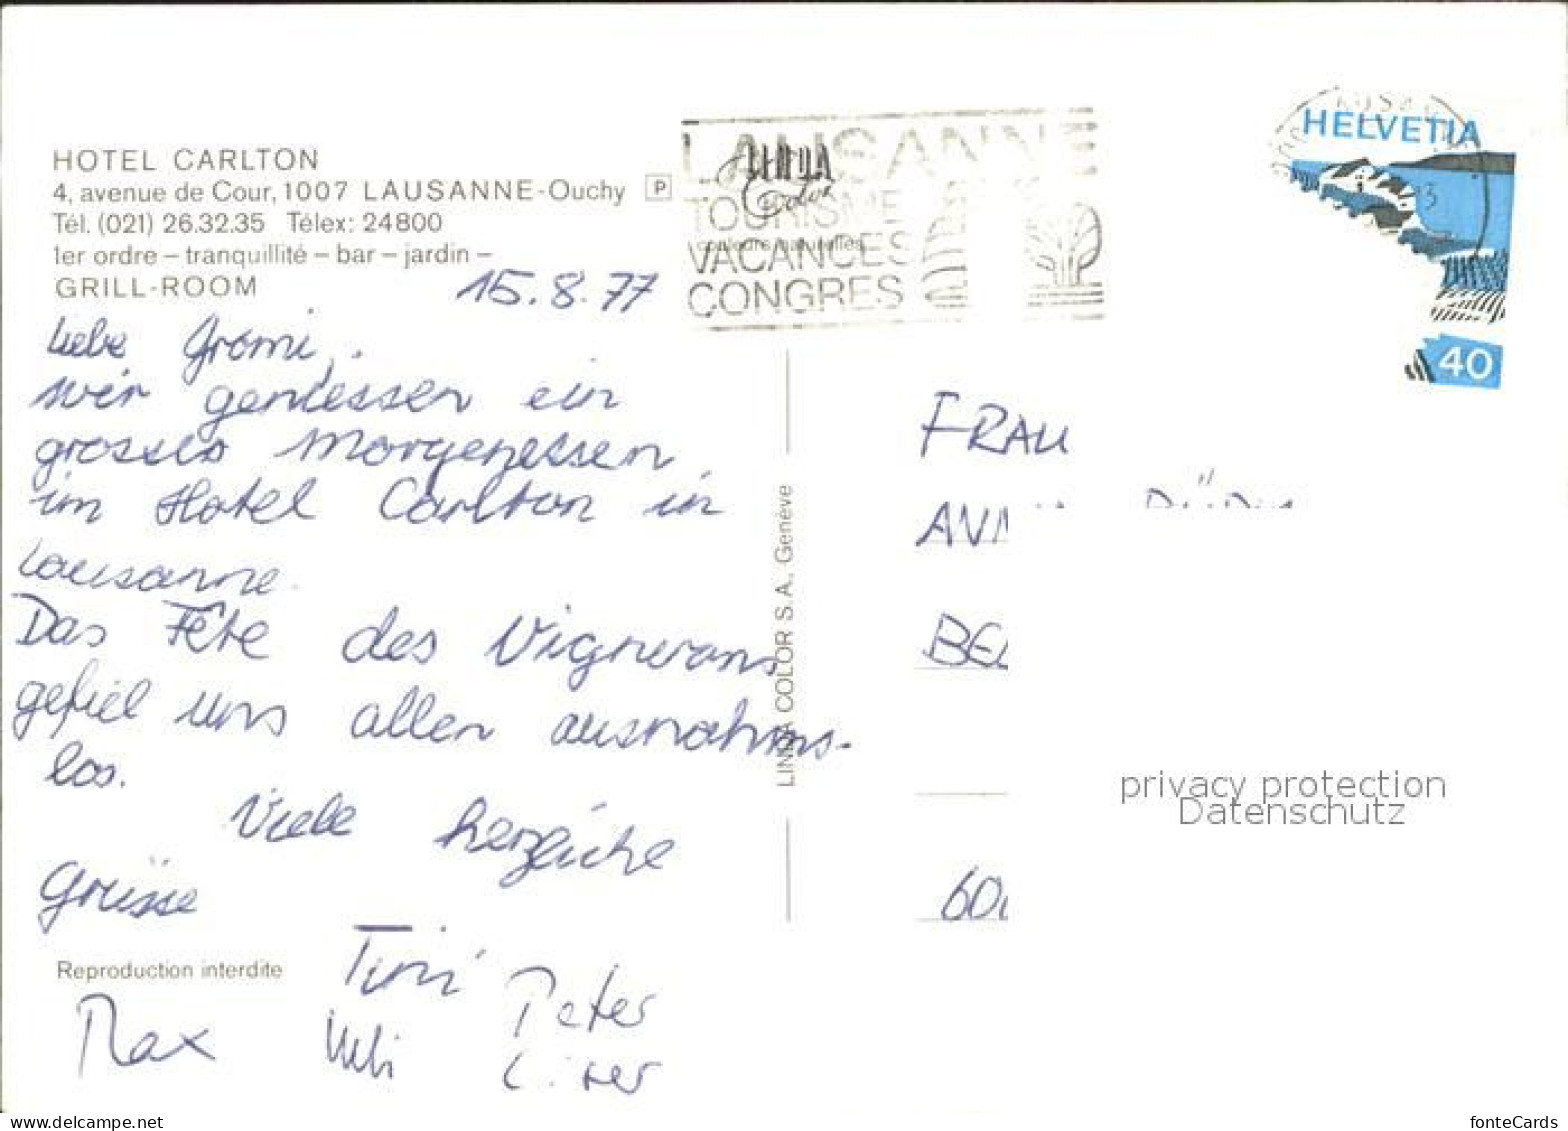 HOTEL CARLTON
4, avenue de Cour, 1007 LAUSANNE-Ouchy P
Tél. (021) 26.32.35 Télex: 24800
1er ordre – tranquillité – bar – jardin –
GRILL-ROOM
15.8.77
Liebe Gromi,
wir geniessen ein
grosses Morgenessen
im Hotel Carlton in
Lausanne.
Das Fête des Vignerons
gefiel uns allen ausnahms-
los.
Viele herzliche
Grüsse
Reproduction interdite
Timi Peter
Max Ueli
LAUSANNE
TOURISME
VACANCES
CONGRES
LINDA
Color
couleurs naturelles
LINDA COLOR S.A., Genève
HELVETIA
40
FRAU
privacy protection
Datenschutz
www.delcampe.net
fonteCards